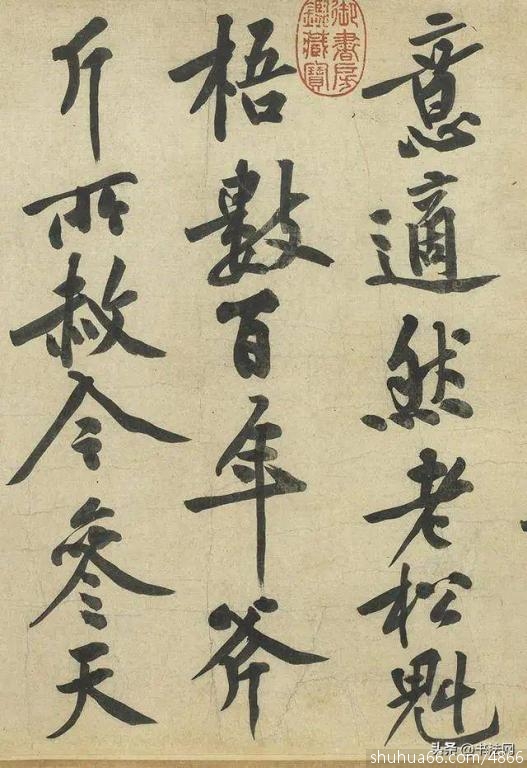 意適然老松魁
梧數百年斧
斤所赦今參天
御書房
鑑藏寶
头条@书法网
shuhua66.com/4866